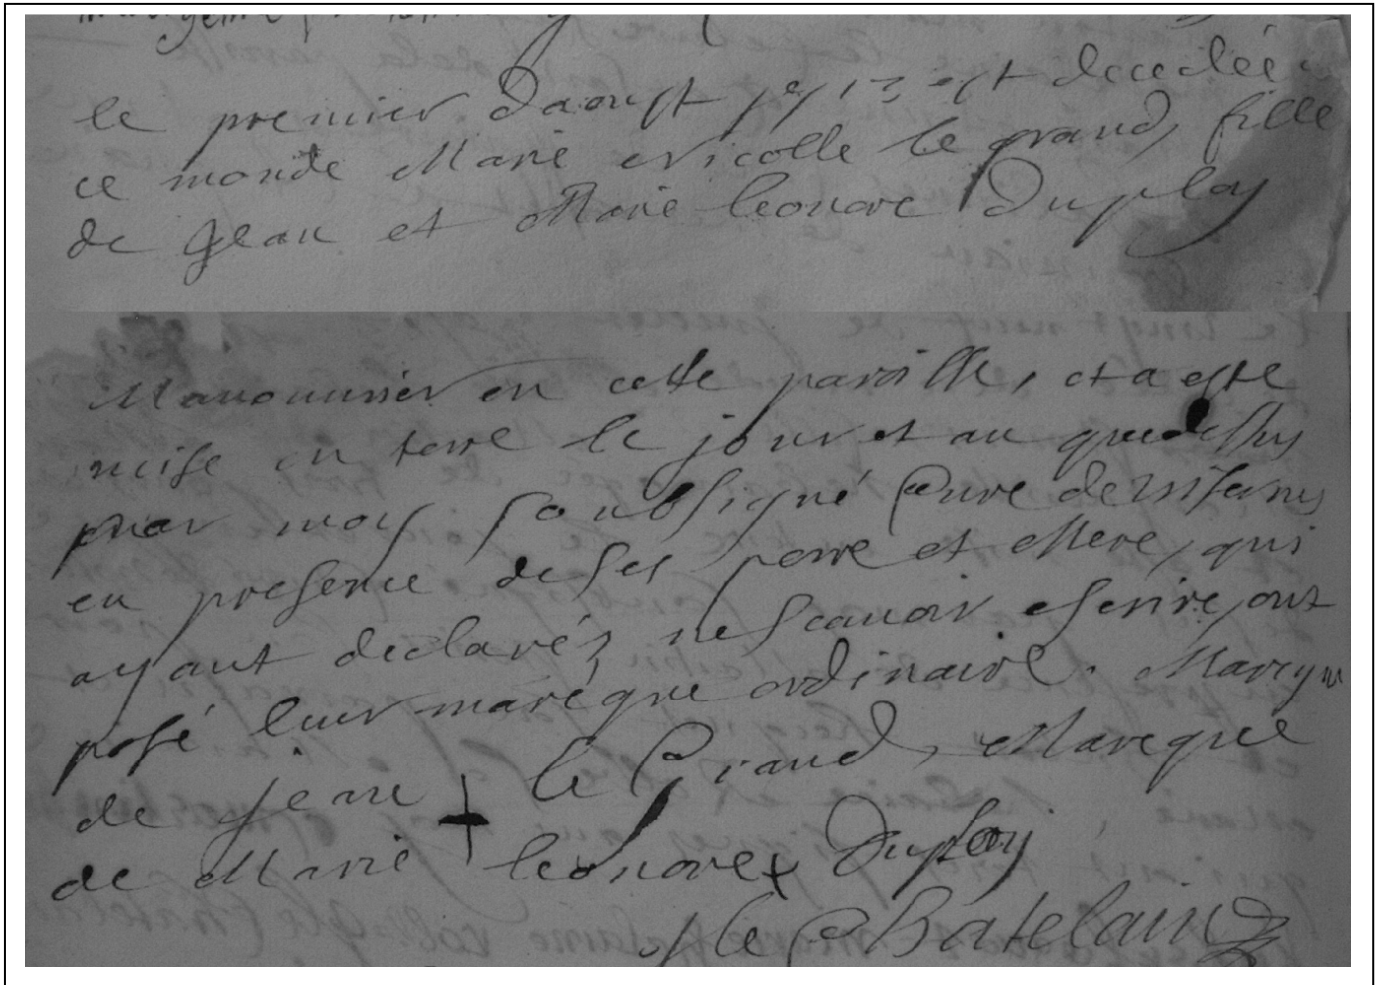 le premier daoust 1712 est decedée
ce monde Marie Nicolle le grand, fille
de Jean et Marie leonore Duploy
Manouurier en cette paroisse, et a esté
mise en terre le jour et an que dessus
par moy soubsigné Cure de
en presence de ses pere et Mere, qui
ayant declarés ne scauoir escrire, ont
posé leur mareque ordinaire. Mareque
de Jean + le Grand, Mareque
de Marie leonore x Duploy
le Chatelain